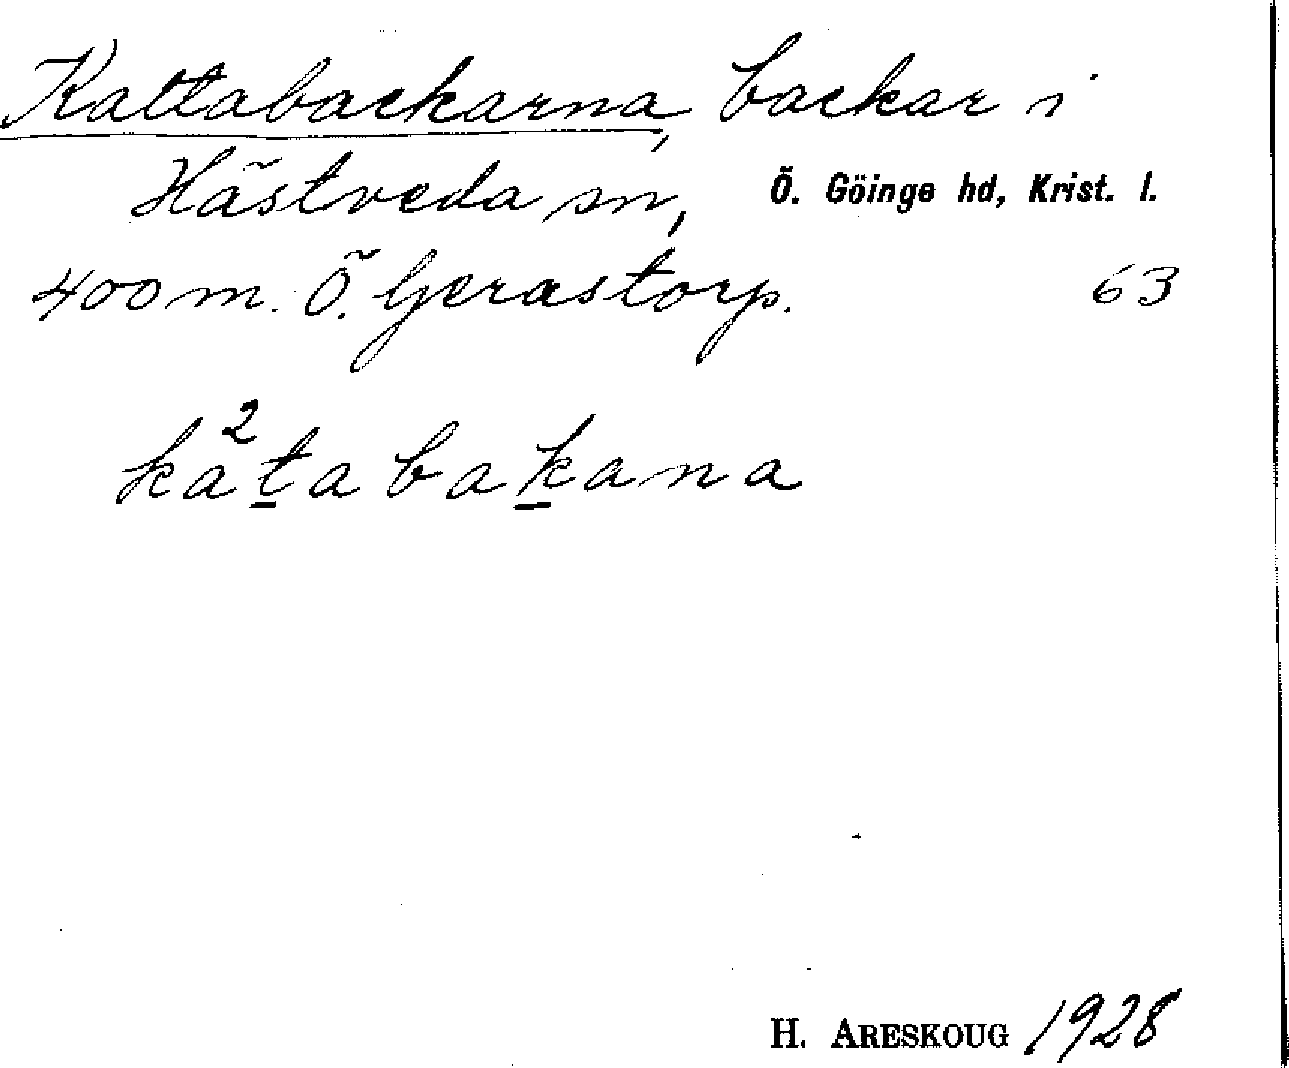 Kattabackarna, backar i
Hästveda sn, Ö. Göinge hd, Krist. l.
400 m. Ö. Gerastorp. 63
ka²t̲abak̲ana
H. ARESKOUG 1928